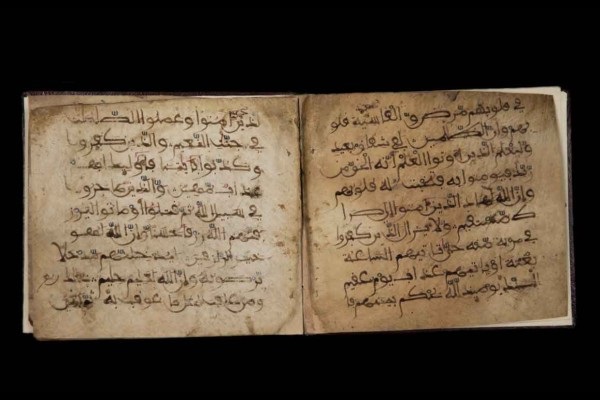 في قلوبهم مرض والقاسية قلو
بهم وان الظلمين لفي شقاق بعيد
وليعلم الذين اوتوا العلم انه الحق من
ربك فيومنوا به فتخبت له قلوبهم
وان الله لهاد الذين امنوا الى صرا
ط مستقيم ولا يزال الذين كفروا
في مرية منه حتى تاتيهم الساعة
بغتة او ياتيهم عذاب يوم عقيم
الملك يومئذ لله يحكم بينهم فا
لذين امنوا وعملوا الصلحت
في جنت النعيم والذين كفروا
وكذبوا بايتنا فاولئك لهم
عذاب مهين والذين هاجروا
في سبيل الله ثم قتلوا او ماتوا ليرز
قنهم الله رزقا حسنا وان الله لهو
خير الرزقين ليدخلنهم مدخلا
يرضونه وان الله لعليم حليم ذلك
ومن عاقب بمثل ما عوقب به